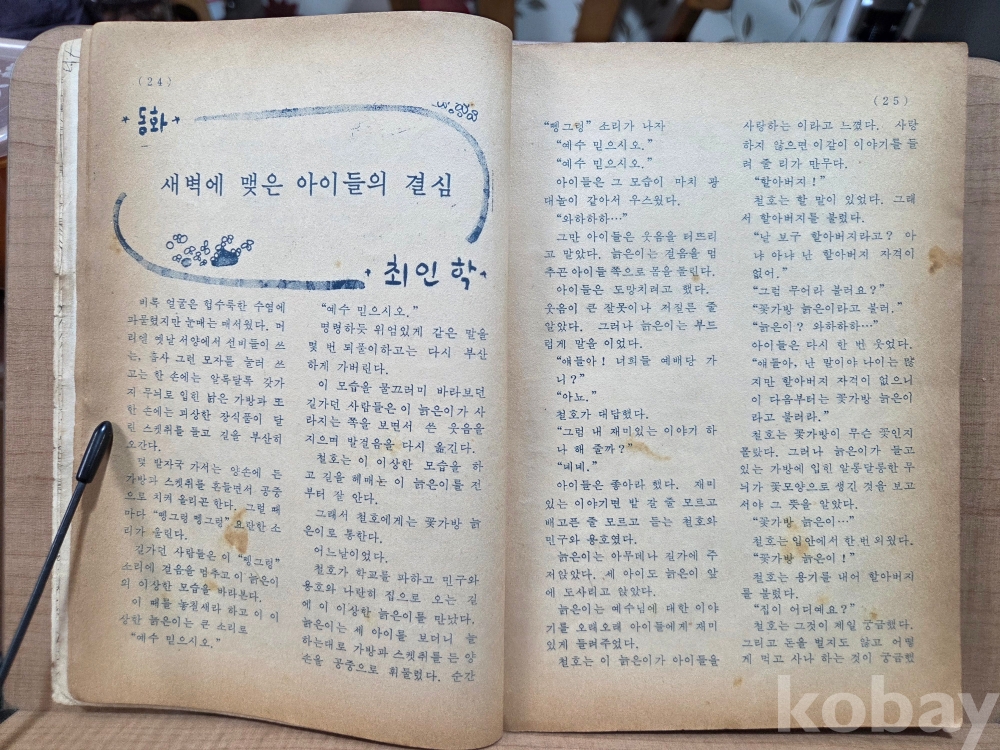 (24)
동화
새벽에 맺은 아이들의 결심
최인학
비록 얼굴은 험수룩한 수염에
파묻혔지만 눈매는 매서웠다. 머
리엔 옛날 서양에서 선비들이 쓰
는, 흡사 그런 모자를 눌러 쓰
고는 한 손에는 알록달록 갖가
지 무늬로 입힌 낡은 가방과 또
한 손에는 괴상한 장식품이 달
린 스켓취를 들고 길을 부산히
오간다.
몇 발자국 가서는 양손에 든
가방과 스켓취를 흔들면서 공중
으로 치켜 올리곤 한다. 그럴 때
마다 “뗑그렁 뗑그렁” 요란한 소
리가 울린다.
길가던 사람들은 이 “뗑그렁”
소리에 걸음을 멈추고 이 늙은이
의 이상한 모습을 바라본다.
이 때를 놓질세라 하고 이 이
상한 늙은이는 큰 소리로
“예수 믿으시오.”
“예수 믿으시오.”
명령하듯 위엄있게 같은 말을
몇 번 되풀이하고는 다시 부산
하게 가버린다.
이 모습을 물끄러미 바라보던
길가던 사람들은 이 늙은이가 사
라지는 쪽을 보면서 쓴 웃음을
지으며 발걸음을 다시 옮긴다.
철호는 이 이상한 모습을 하
고 길을 헤매논 이 늙은이를 전
부터 잘 안다.
그래서 철호에게는 꽃가방 늙
은이로 통한다.
어느날이었다.
철호가 학교를 파하고 민구와
용호와 나란히 집으로 오는 길
에 이 이상한 늙은이를 만났다.
늙은이는 세 아이를 보더니 늘
하는대로 가방과 스켓취를 든 양
손을 공중으로 휘둘렀다. 순간
(25)
“뗑그렁” 소리가 나자
“예수 믿으시오.”
“예수 믿으시오.”
아이들은 그 모습이 마치 광
대놀이 같아서 우스웠다.
“와하하하…”
그만 아이들은 웃음을 터뜨리
고 말았다. 늙은이는 걸음을 멈
추곤 아이들 쪽으로 몸을 돌린다.
아이들은 도망치려고 했다.
웃음이 큰 잘못이나 저질른 줄
알았다. 그러나 늙은이는 부드
럽게 말을 이었다.
“얘들아! 너희들 예배당 가
니?”
“아뇨.”
철호가 대답했다.
“그럼 내 재미있는 이야기 하
나 해 줄까?”
“네네.”
아이들은 좋아라 했다. 재미
있는 이야기면 밤 잘 줄 모르고
배고픈 줄 모르고 듣는 철호와
민구와 용호였다.
늙은이는 아무데나 길가에 주
저앉았다. 세 아이도 늙은이 앞
에 도사리고 앉았다.
늙은이는 예수님에 대한 이야
기를 오래오래 아이들에게 재미
있게 들려주었다.
철호는 이 늙은이가 아이들을
사랑하는 이라고 느꼈다. 사랑
하지 않으면 이같이 이야기를 들
려 줄 리가 만무다.
“할아버지!”
철호는 할 말이 있었다. 그래
서 할아버지를 불렀다.
“날 보구 할아버지라고? 아
냐 아냐 난 할아버지 자격이
없어.”
“그럼 무어라 불러요?”
“꽃가방 늙은이라고 불러.”
“늙은이? 와하하하…”
아이들은 다시 한 번 웃었다.
“얘들아, 난 말이야 나이는 많
지만 할아버지 자격이 없으니
이 다음부터는 꽃가방 늙은이
라고 불러라.”
철호는 꽃가방이 무슨 꽃인지
몰랐다. 그러나 늙은이가 들고
있는 가방에 입힌 알롱달롱한 무
늬가 꽃모양으로 생긴 것을 보고
서야 그 뜻을 알았다.
“꽃가방 늙은이…”
철호는 입안에서 한 번 외웠다.
“꽃가방 늙은이!”
철호는 용기를 내어 할아버지
를 불렀다.
“집이 어디예요?”
철호는 그것이 제일 궁금했다.
그리고 돈을 벌지도 않고 어떻
게 먹고 사나 하는 것이 궁금했
kobay